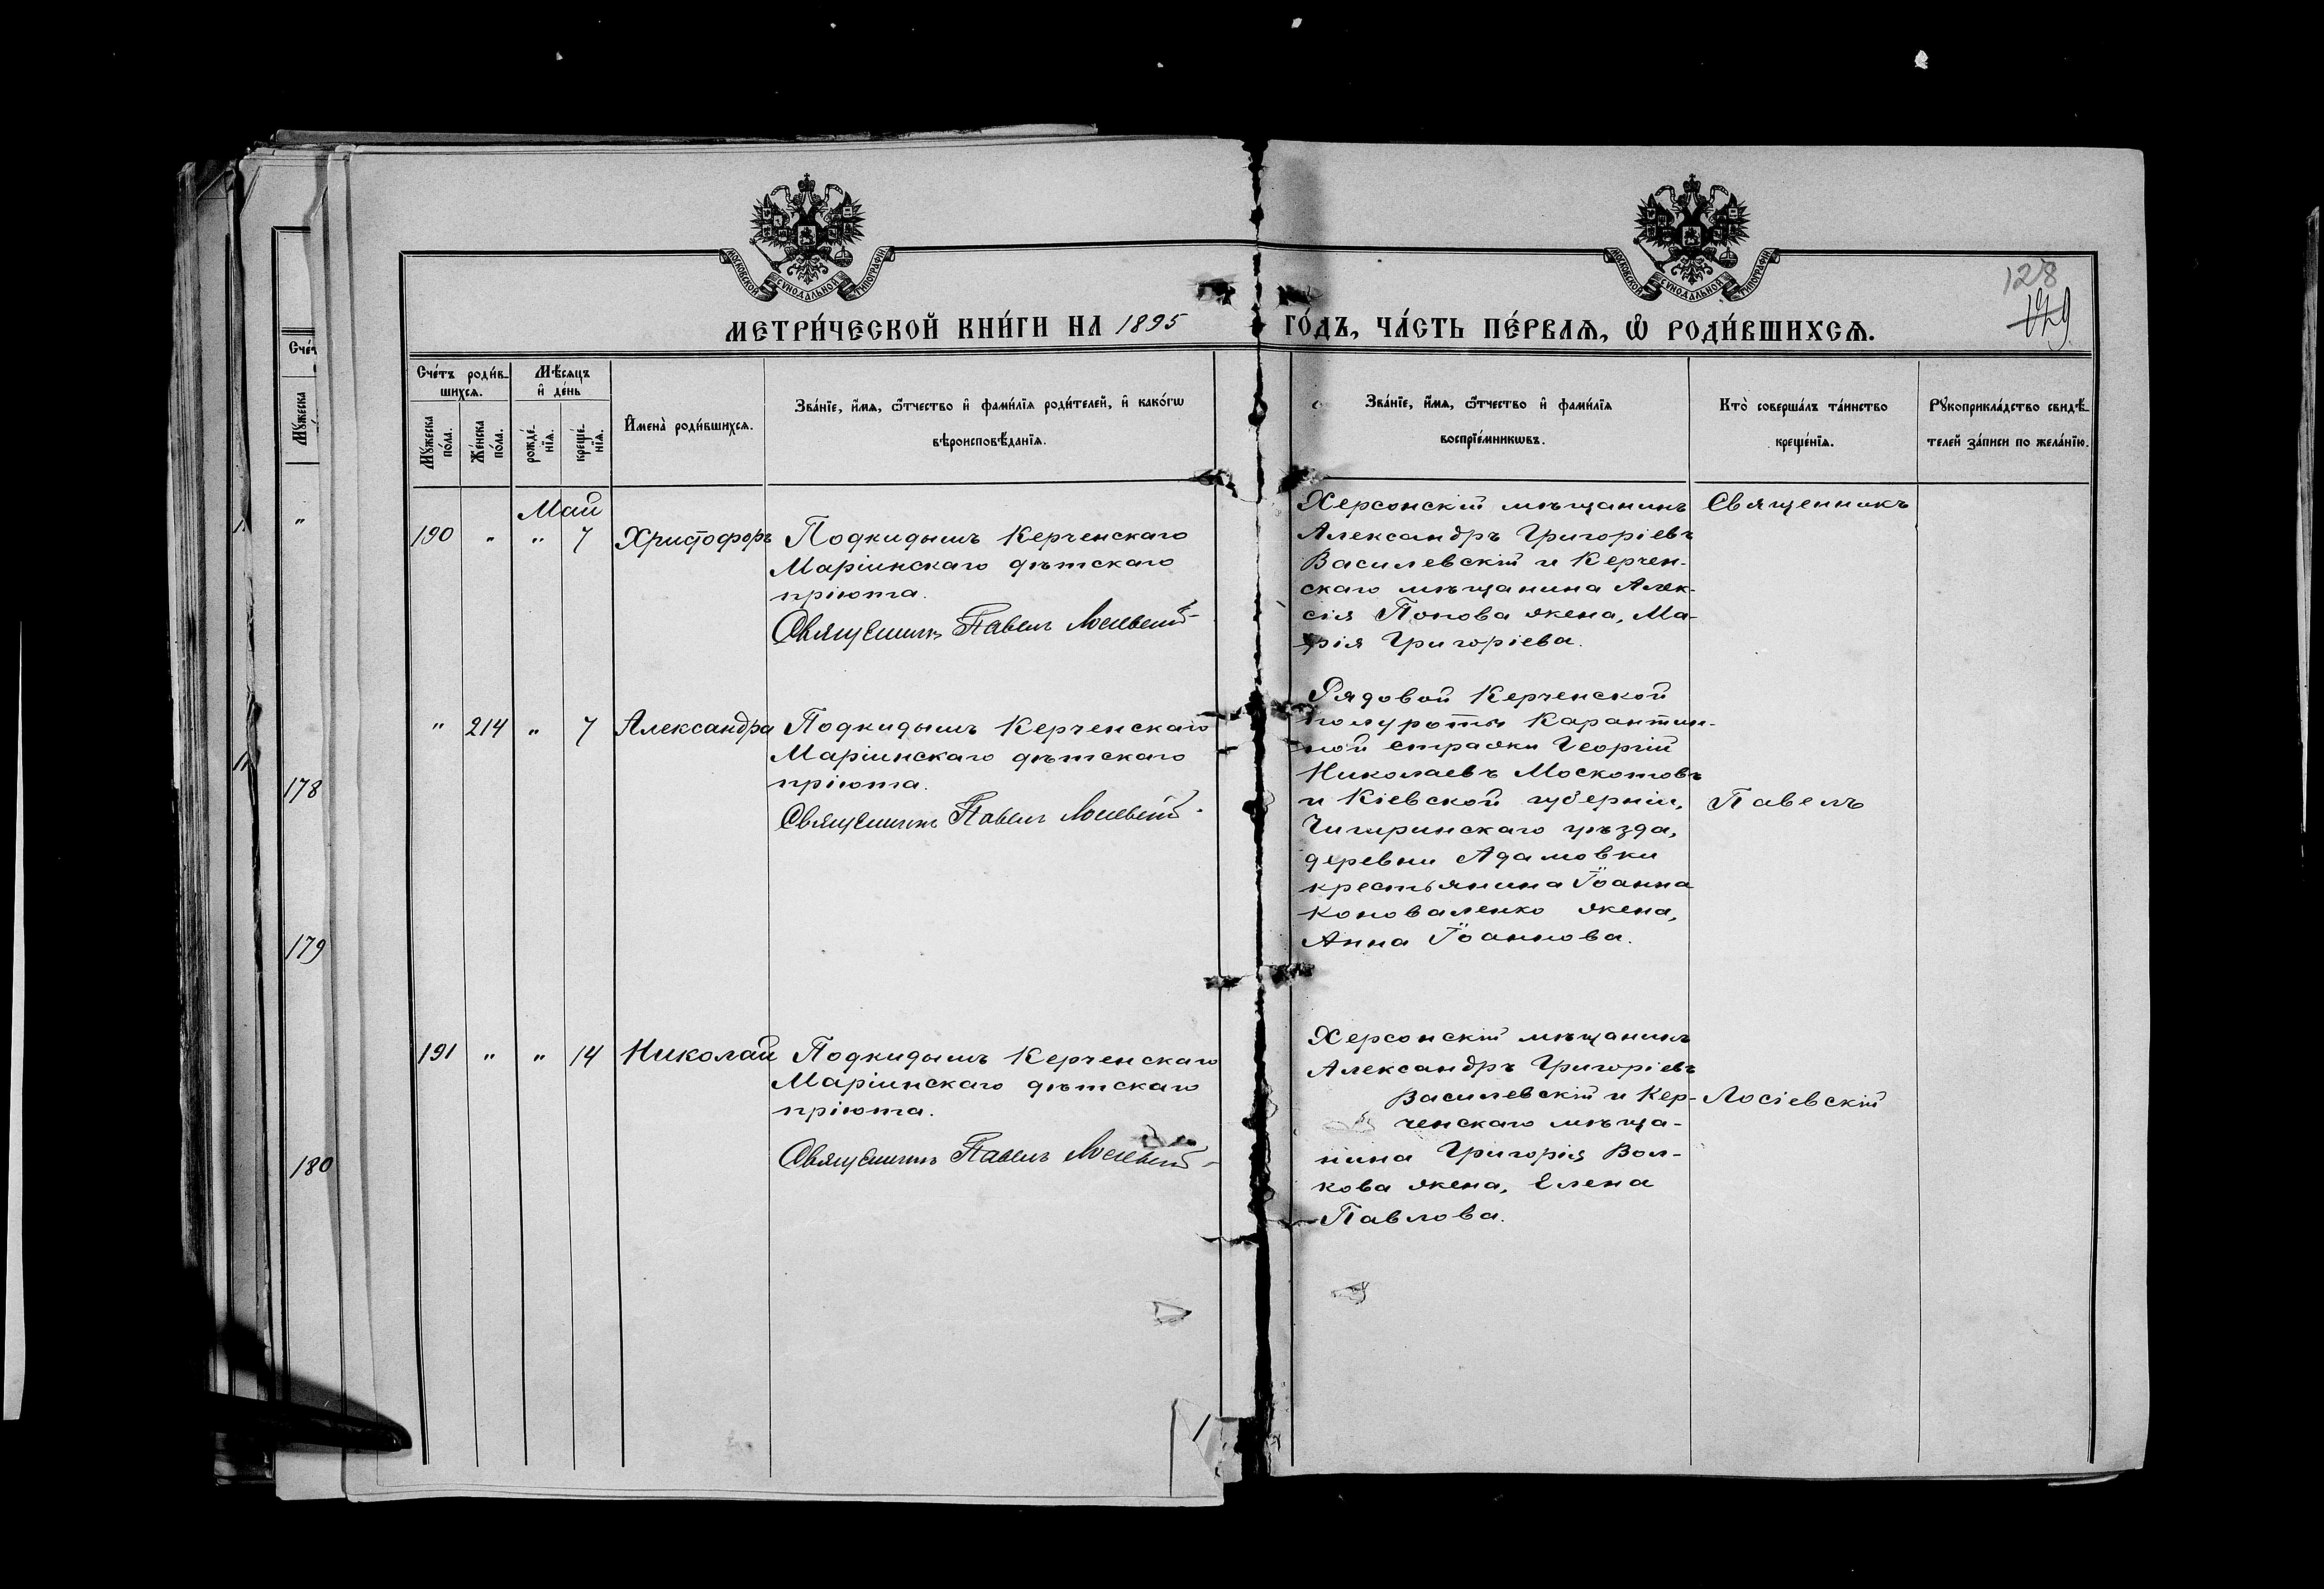 МОСКОВСКОЙ СѴНОДАЛЬНОЙ ТИПОГРАФІИ
МОСКОВСКОЙ СѴНОДАЛЬНОЙ ТИПОГРАФІИ
128
179
МЕТРИ́ЧЕСКОЙ КНИ́ГИ НА 1895 ГО́ДЪ, ЧА́СТЬ ПЕ́РВАЯ, Ѡ҆ РОДИ́ВШИХСѦ.
Сче́тъ роди́в-
шихсѧ.
Мꙋ́жеска
по́ла.
Же́нска
по́ла.
Мѣ́сѧцъ
и҆ де́нь
рожде́-
нїѧ.
креще́-
нїѧ.
И҆мена̀ роди́вшихсѧ.
Зва́нїе, и҆́мѧ, ѻ҆́тчество и҆ фами́лїѧ роди́телей, и҆ како́гѡ
вѣроисповѣ́данїѧ.
Зва́нїе, и҆́мѧ, ѻ҆́тчество и҆ фами́лїѧ
воспрїе́мникѡвъ.
Кто̀ соверша́лъ та́инство
креще́нїѧ.
Рꙋкоприкла́дство свидѣ́-
телей за́писи по жела́нїю.
Май
190 " " 7 Христофоръ
Подкидышъ Керченскаго
Маріинскаго дѣтскаго
пріюта.
Священникъ Павелъ Лосіевскій
Херсонскій мѣщанинъ
Александръ Григоріевъ
Василевскій и Керчен-
скаго мѣщанина Алек-
сія Попова жена, Ма-
рія Григоріева.
Священникъ
" 214 " 7 Александра
Подкидышъ Керченскаго
Маріинскаго дѣтскаго
пріюта.
Священникъ Павелъ Лосіевскій
Рядовой Керченской
полуроты Карантин-
ной стражи Георгій
Николаевъ Москотовъ
и Кіевской губерніи,
Чигиринскаго уѣзда,
деревни Адамовки
крестьянина Іоанна
Коноваленко жена,
Анна Іоаннова.
Павелъ
191 " " 14 Николай
Подкидышъ Керченскаго
Маріинскаго дѣтскаго
пріюта.
Священникъ Павелъ Лосіевскій
Херсонскій мѣщанинъ
Александръ Григоріевъ
Василевскій и Кер-
ченскаго мѣща-
нина Григорія Вол-
кова жена, Елена
Павлова.
Лосіевскій
Сче́т
Мꙋ́жеска
"
178
179
180